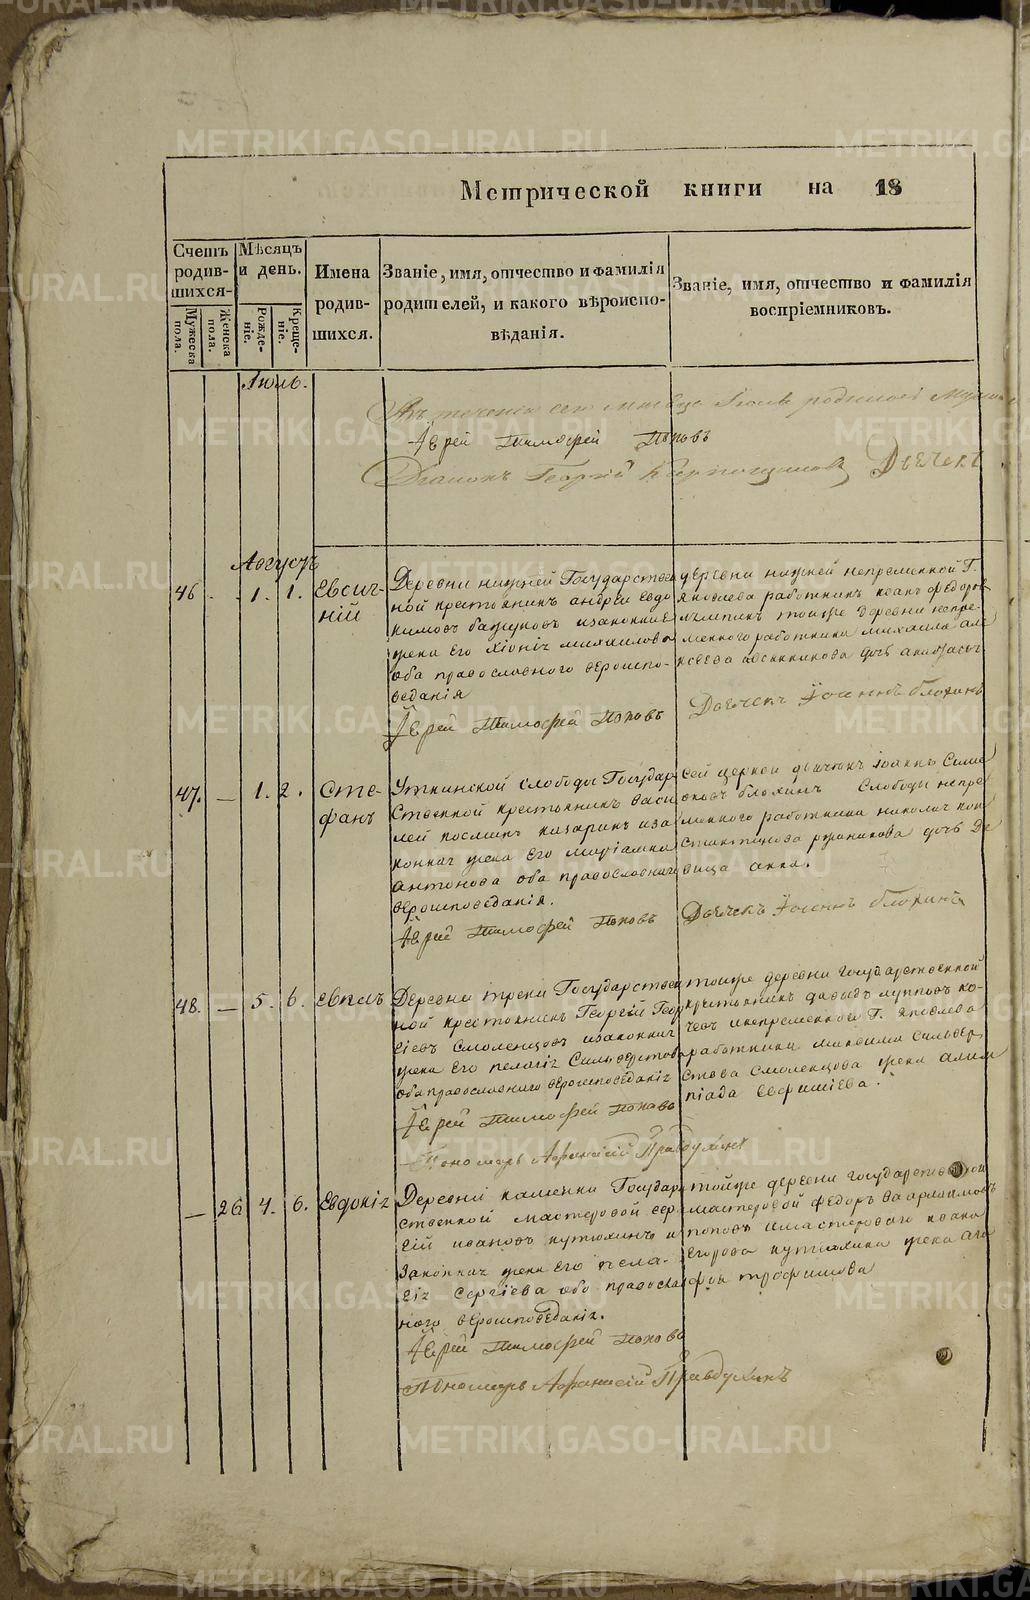 Метрической книги на 18
Счетъ родив-шихся.
Мѣсяцъ и день.
Имена родив-шихся.
Званіе, имя, отчество и фамилія родителей, и какого вѣроиспо-вѣданія.
Званіе, имя, отчество и фамилія воспріемниковъ.
Мужеска пола.
Женска пола.
Рожде-ніе.
Креще-ніе.
Іюль.
Въ теченіи сего мѣсяца Іюля родилось
Іерей Тимофей Поповъ
Діаконъ Георгій
Дьячекъ
Августъ
46 - 1. 1. Евсиг-
ній
Деревни нижней Государствен
ной крестьянинъ андрей евдо
кимовъ бажуковъ изаконная
жена Его Хіонія михаилова
оба православнаго вероиспо-
веданія
Іерей Тимофей Поповъ
деревни нижней непременной Г.
Яковлева работникъ иванъ федоровъ
тоияже деревни непре-
меннаго работника михаила але
ксеева дочь
Дьячекъ Іоаннъ Блохинъ
47. — 1. 2. Сте-
фанъ
Уткинской слободы Государ
ственной крестьянинъ васи
лей казаринъ иза
конная жена Его маріамна
антонова оба православнаго
вероисповеданія.
Іерей Тимофей Поповъ
Сей церкви дьячекъ Іоаннъ
блохинъ Слободы непре
меннаго работника николая кон
стантинова ружникова дочь де
вица анна.
Дьячекъ Іоаннъ Блохинъ
48. — 5. 6. Евплъ
Деревни треки Государствен
ной крестьянинъ Георгій Геор
гіевъ Смоленцовъ изаконная
жена Его пелагія Сильверстова
оба православнаго вероисповеданія
Іерей Тимофей Поповъ
Пономарь Афанасій Правдухинъ
тоияже деревни государственной
крестьянинъ давыдъ лупповъ ко-
чевъ инепременнаго Г. Яковлева
работника максима Сильвер
стова Смоленцова жена алим
піада Евфиміева.
— 26 4. 6. Евдокія
Деревни каменки Государ
ственной мастеровой сер
гій ивановъ кутюхинъ и
законная жена его пела-
гія Сергіева оба православ
наго вероисповеданія.
Іерей Тимофей Поповъ
Пономарь Афанасій Правдухинъ
тойже деревни государственной
мастеровой федоръ варламовъ
поповъ имастероваго ивана
Егорова кутюхина жена ага
фья трофимова
METRIKI.GASO-URAL.RU